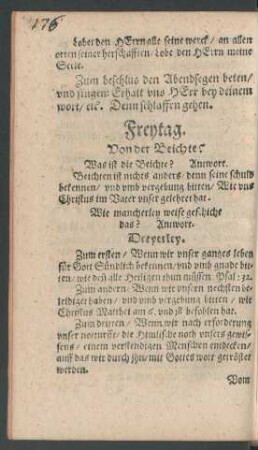 176
Lobet den HErrn alle seine werck / an allen
orten seiner herschafften / Lobe den HErrn meine
Seele.
Zum beschlus den Abendsegen beten /
vnd singen: Erhalt vns HErr bey deinem
wort / etc. Denn schlaffen gehen.
Freytag.
Von der Beichte?
Was ist die Beichte? Antwort.
Beichten ist nichts anders / denn seine schuld
bekennen / vnd vmb vergebung bitten / Wie vns
Christus im Vater vnser gelehret hat.
Wie mancherley weise geschicht
das? Antwort.
Dreyerley.
Zum ersten / Wenn wir vnser gantzes leben
für Gott Sündlich bekennen / vnd vmb gnade bit-
ten / wie deñ alle Heiligen thun müssen. Psal: 32.
Zum andern / Wenn wir vnsern nechsten be-
leidiget haben / vnd vmb vergebung bitten / wie
Christus Matthei am 5. vnd 18 befohlen hat.
Zum dritten / Wenn wir nach erforderung
vnser notturfft / die Heimlische noth vnsers gewis-
sens / einem verstendigen Menschen entdecken /
auff das wir durch jhn / mit Gottes wort getröstet
werden.
Vom